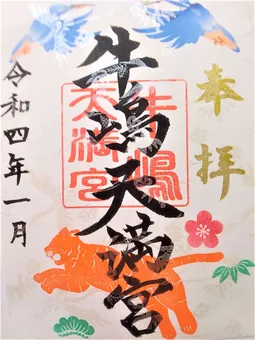 奉拝
牛嶋天満宮
牛嶋
天満宮
令和四年一月